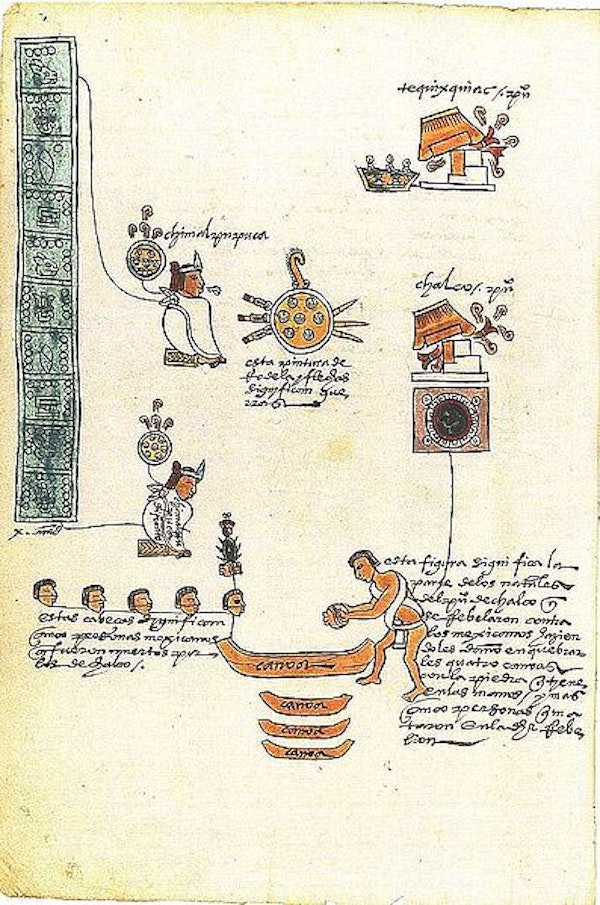 tequixquiac / pu
chimalpupuca
esta pintura de
Rodela y flechas
significan gue
rra
chalco / pu
chimalpo
puca
esta figura significa la
parte de los natales
del pu de chalco q
se Rebelaron contra
los mexicanos hazien
doles daño en quebrar
les quatro canoas
con la piedra q tiene
en las manos / y mas
cinco personas q ma
taron en la dha Rebe
lion
estas cabeças significan
cinco personas mexicanos
q fueron muertos por
los de chalco /
canoa
canoa
canoa
canoa